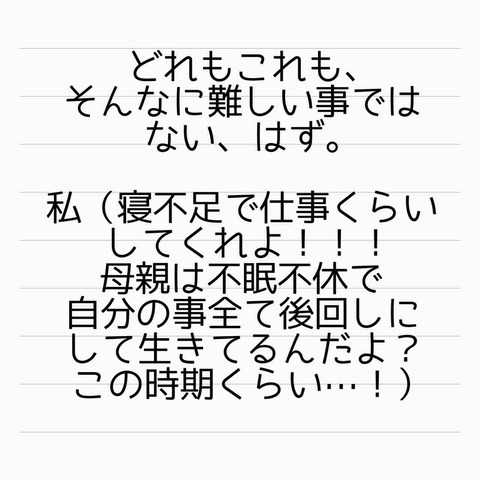 どれもこれも、
そんなに難しい事では
ない、はず。
私（寝不足で仕事くらい
してくれよ！！！
母親は不眠不休で
自分の事全て後回しに
して生きてるんだよ？
この時期くらい…！）